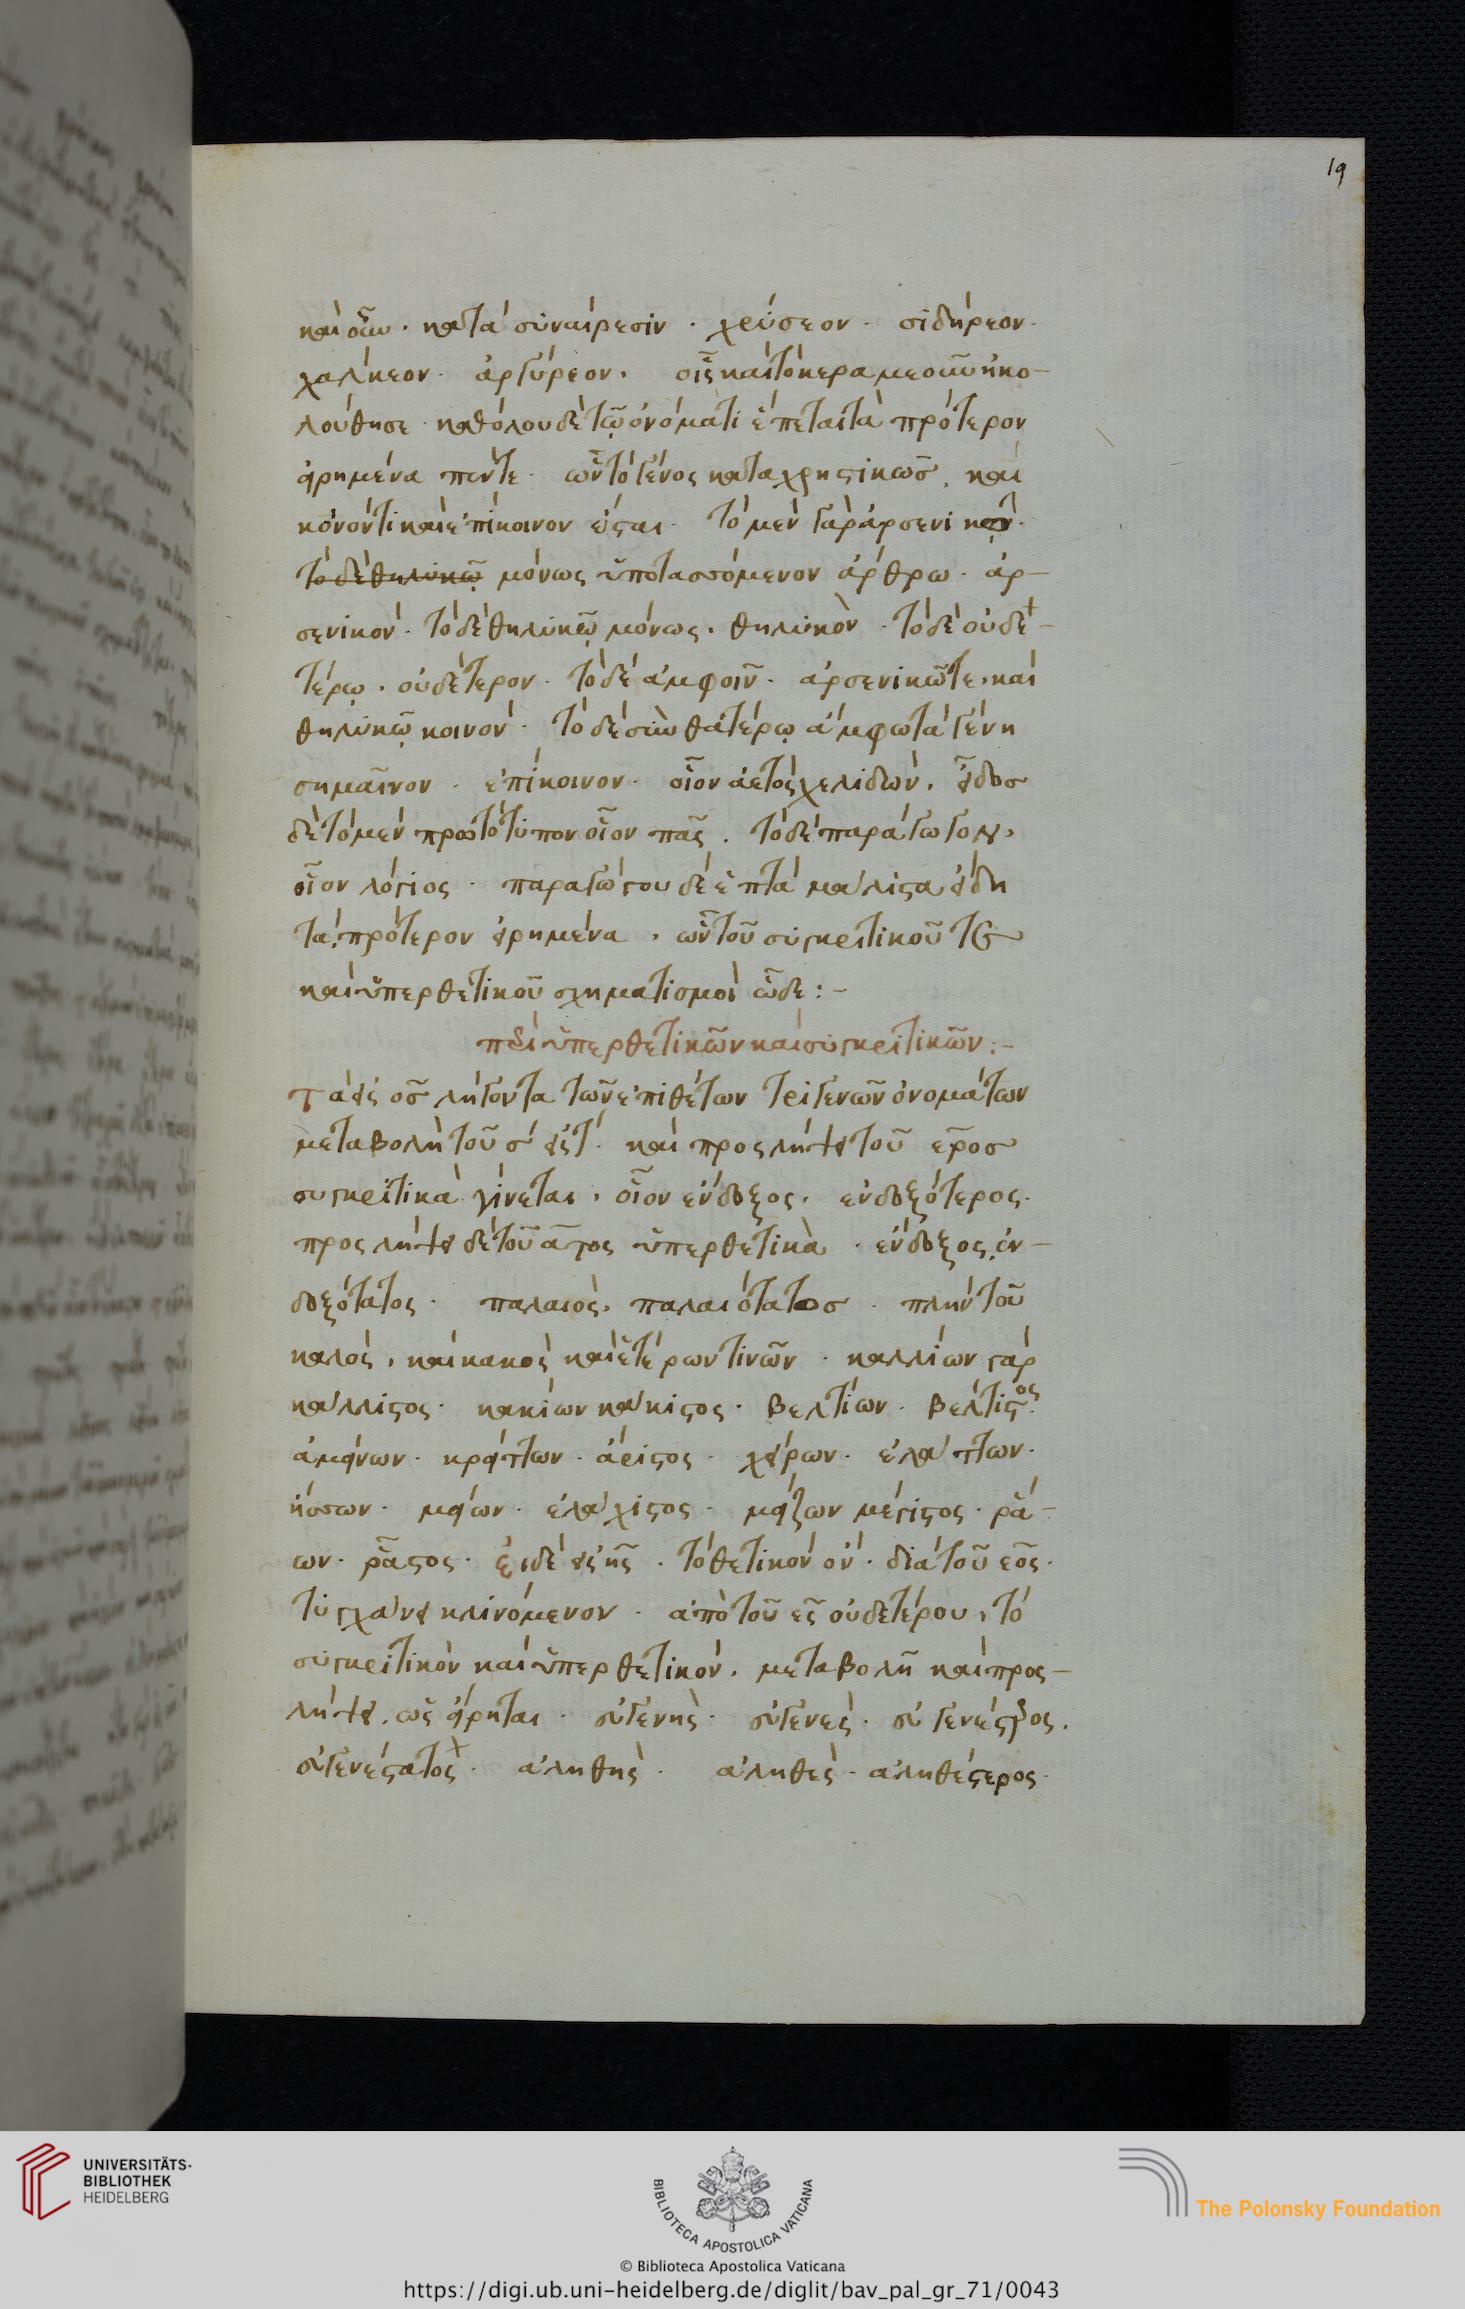 19
καὶ οῦν · κατὰ συναίρεσιν · χρύσεον · σιδήρεον ·
χάλκεον · ἀργύρεον · οἷς καὶ τὸ κεραμεοῦν ἠκο-
λούθησε · καθόλου δὲ τῷ ὀνόματι ἕπεται τὰ πρότερον
εἰρημένα πέντε · ὧν τὸ γένος καταχρηστικῶς, καὶ
κοινόν τι καὶ ἐπίκοινον ἔσται · τὸ μὲν γὰρ ἀρσενικῷ
τὸ δὲ θηλυκῷ μόνως ὑποτασσόμενον ἄρθρω · ἀρ-
σενικόν · τὸ δὲ θηλυκῷ μόνως · θηλυκὸν · τὸ δὲ οὐδε-
τέρῳ · οὐδέτερον · τὸ δὲ ἀμφοῖν · ἀρσενικῶ τε, καὶ
θηλυκῷ κοινόν · τὸ δὲ σὺν θατέρῳ ἄμφω τὰ γένη
σημαῖνον · ἐπίκοινον · οἷον ἀετὸς χελιδών · εἶδος
δὲ τὸ μὲν πρωτότυπον οἷον πᾶς · τὸ δὲ παράγωγον,
οἷον λόγιος · παραγώγου δὲ ἑπτὰ μάλιστα εἴδη
τὰ πρότερον εἰρημένα · ὧν τοῦ συγκριτικοῦ τε
καὶ ὑπερθετικοῦ σχηματισμοὶ ὧδε :-
περὶ ὑπερθετικῶν καὶ συγκριτικῶν :-
Τὰ εἰς ος λήγοντα τῶν ἐπιθέτων τριγενῶν ὀνομάτων
μεταβολῇ τοῦ σ εἰς τ · καὶ προσλήψει τοῦ ερος
συγκριτικὰ γίνεται · οἷον ἔνδοξος · ἐνδοξότερος ·
προσλήψει δὲ τοῦ ατος ὑπερθετικὰ · ἔνδοξος, ἐν-
δοξότατος · παλαιός, παλαιότατος · πλὴν τοῦ
καλός, καὶ κακὸς καὶ ἑτέρων τινῶν · καλλίων γὰρ
κάλλιστος · κακίων κάκιστος · βελτίων · βέλτιστος ·
ἀμείνων · κρείττων · ἄριστος · χείρων · ἐλάττων ·
ἥσσων · μείων · ἐλάχιστος · μείζων μέγιστος · ρά-
ων · ρᾶστος · εἰ δὲ εἰς ης · τὸ θετικὸν ὂν · διὰ τοῦ εος ·
τυγχάνει κλινόμενον · ἀπὸ τοῦ ες οὐδετέρου, τὸ
συγκριτικὸν καὶ ὑπερθετικόν · μεταβολῇ καὶ προσ-
λήψει, ὡς εἴρηται · εὐγενὴς · εὐγενὲς · εὐγενέστερος ·
εὐγενέστατος · ἀληθὴς · ἀληθὲς · ἀληθέστερος ·
UNIVERSITÄTS-
BIBLIOTHEK
HEIDELBERG
BIBLIOTECA APOSTOLICA VATICANA
The Polonsky Foundation
© Biblioteca Apostolica Vaticana
https://digi.ub.uni-heidelberg.de/diglit/bav_pal_gr_71/0043